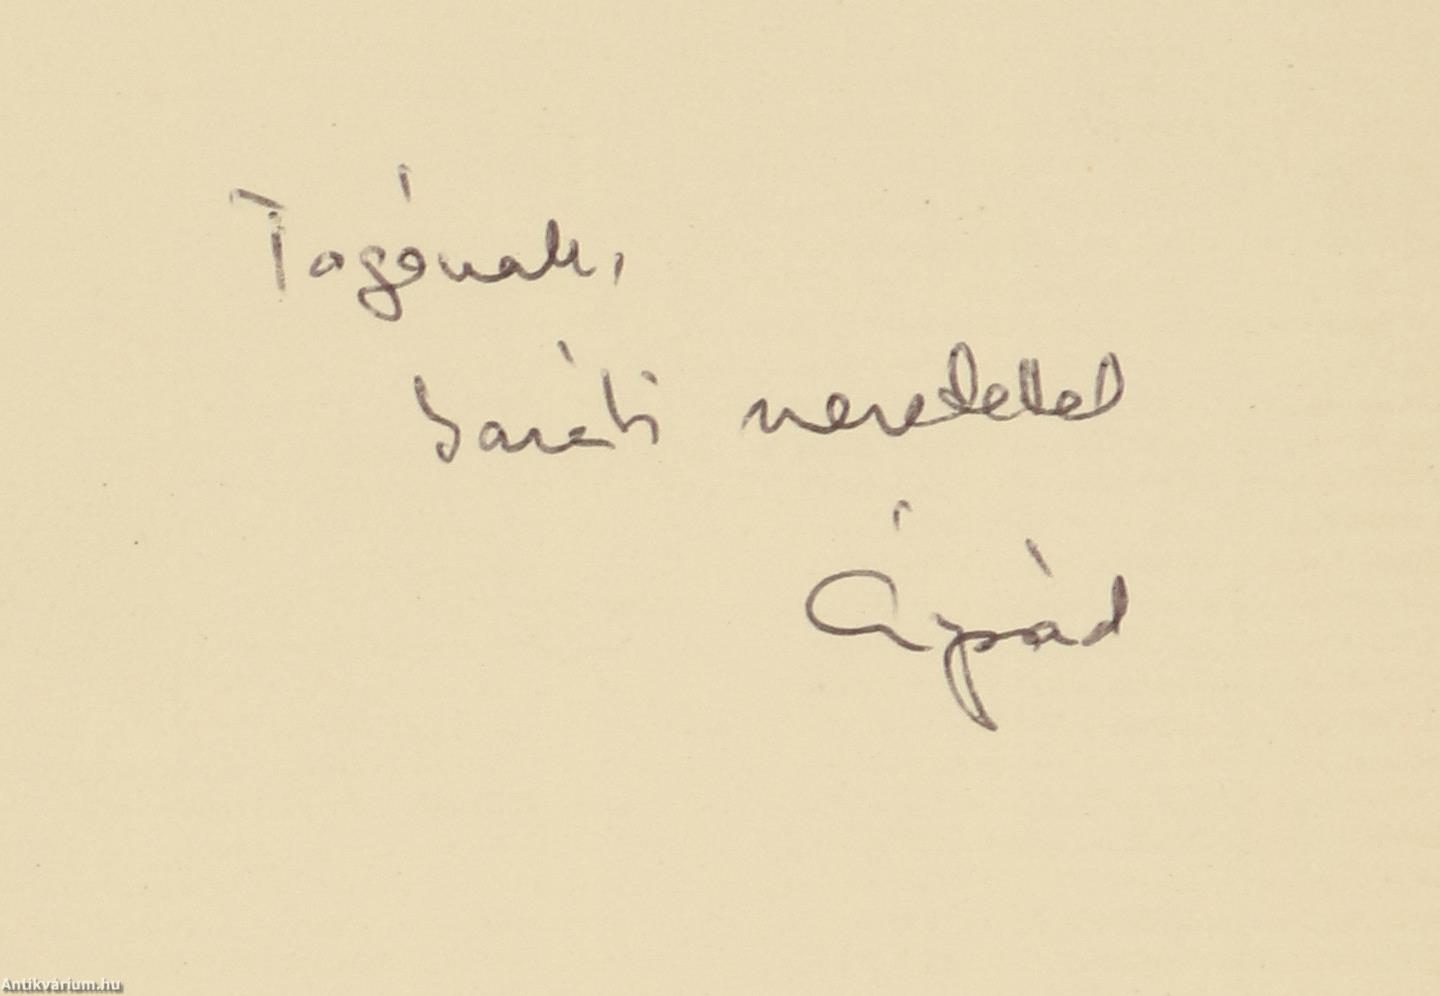 Tagónak,
baráti szeretettel
Árpád
Antikvárium.hu